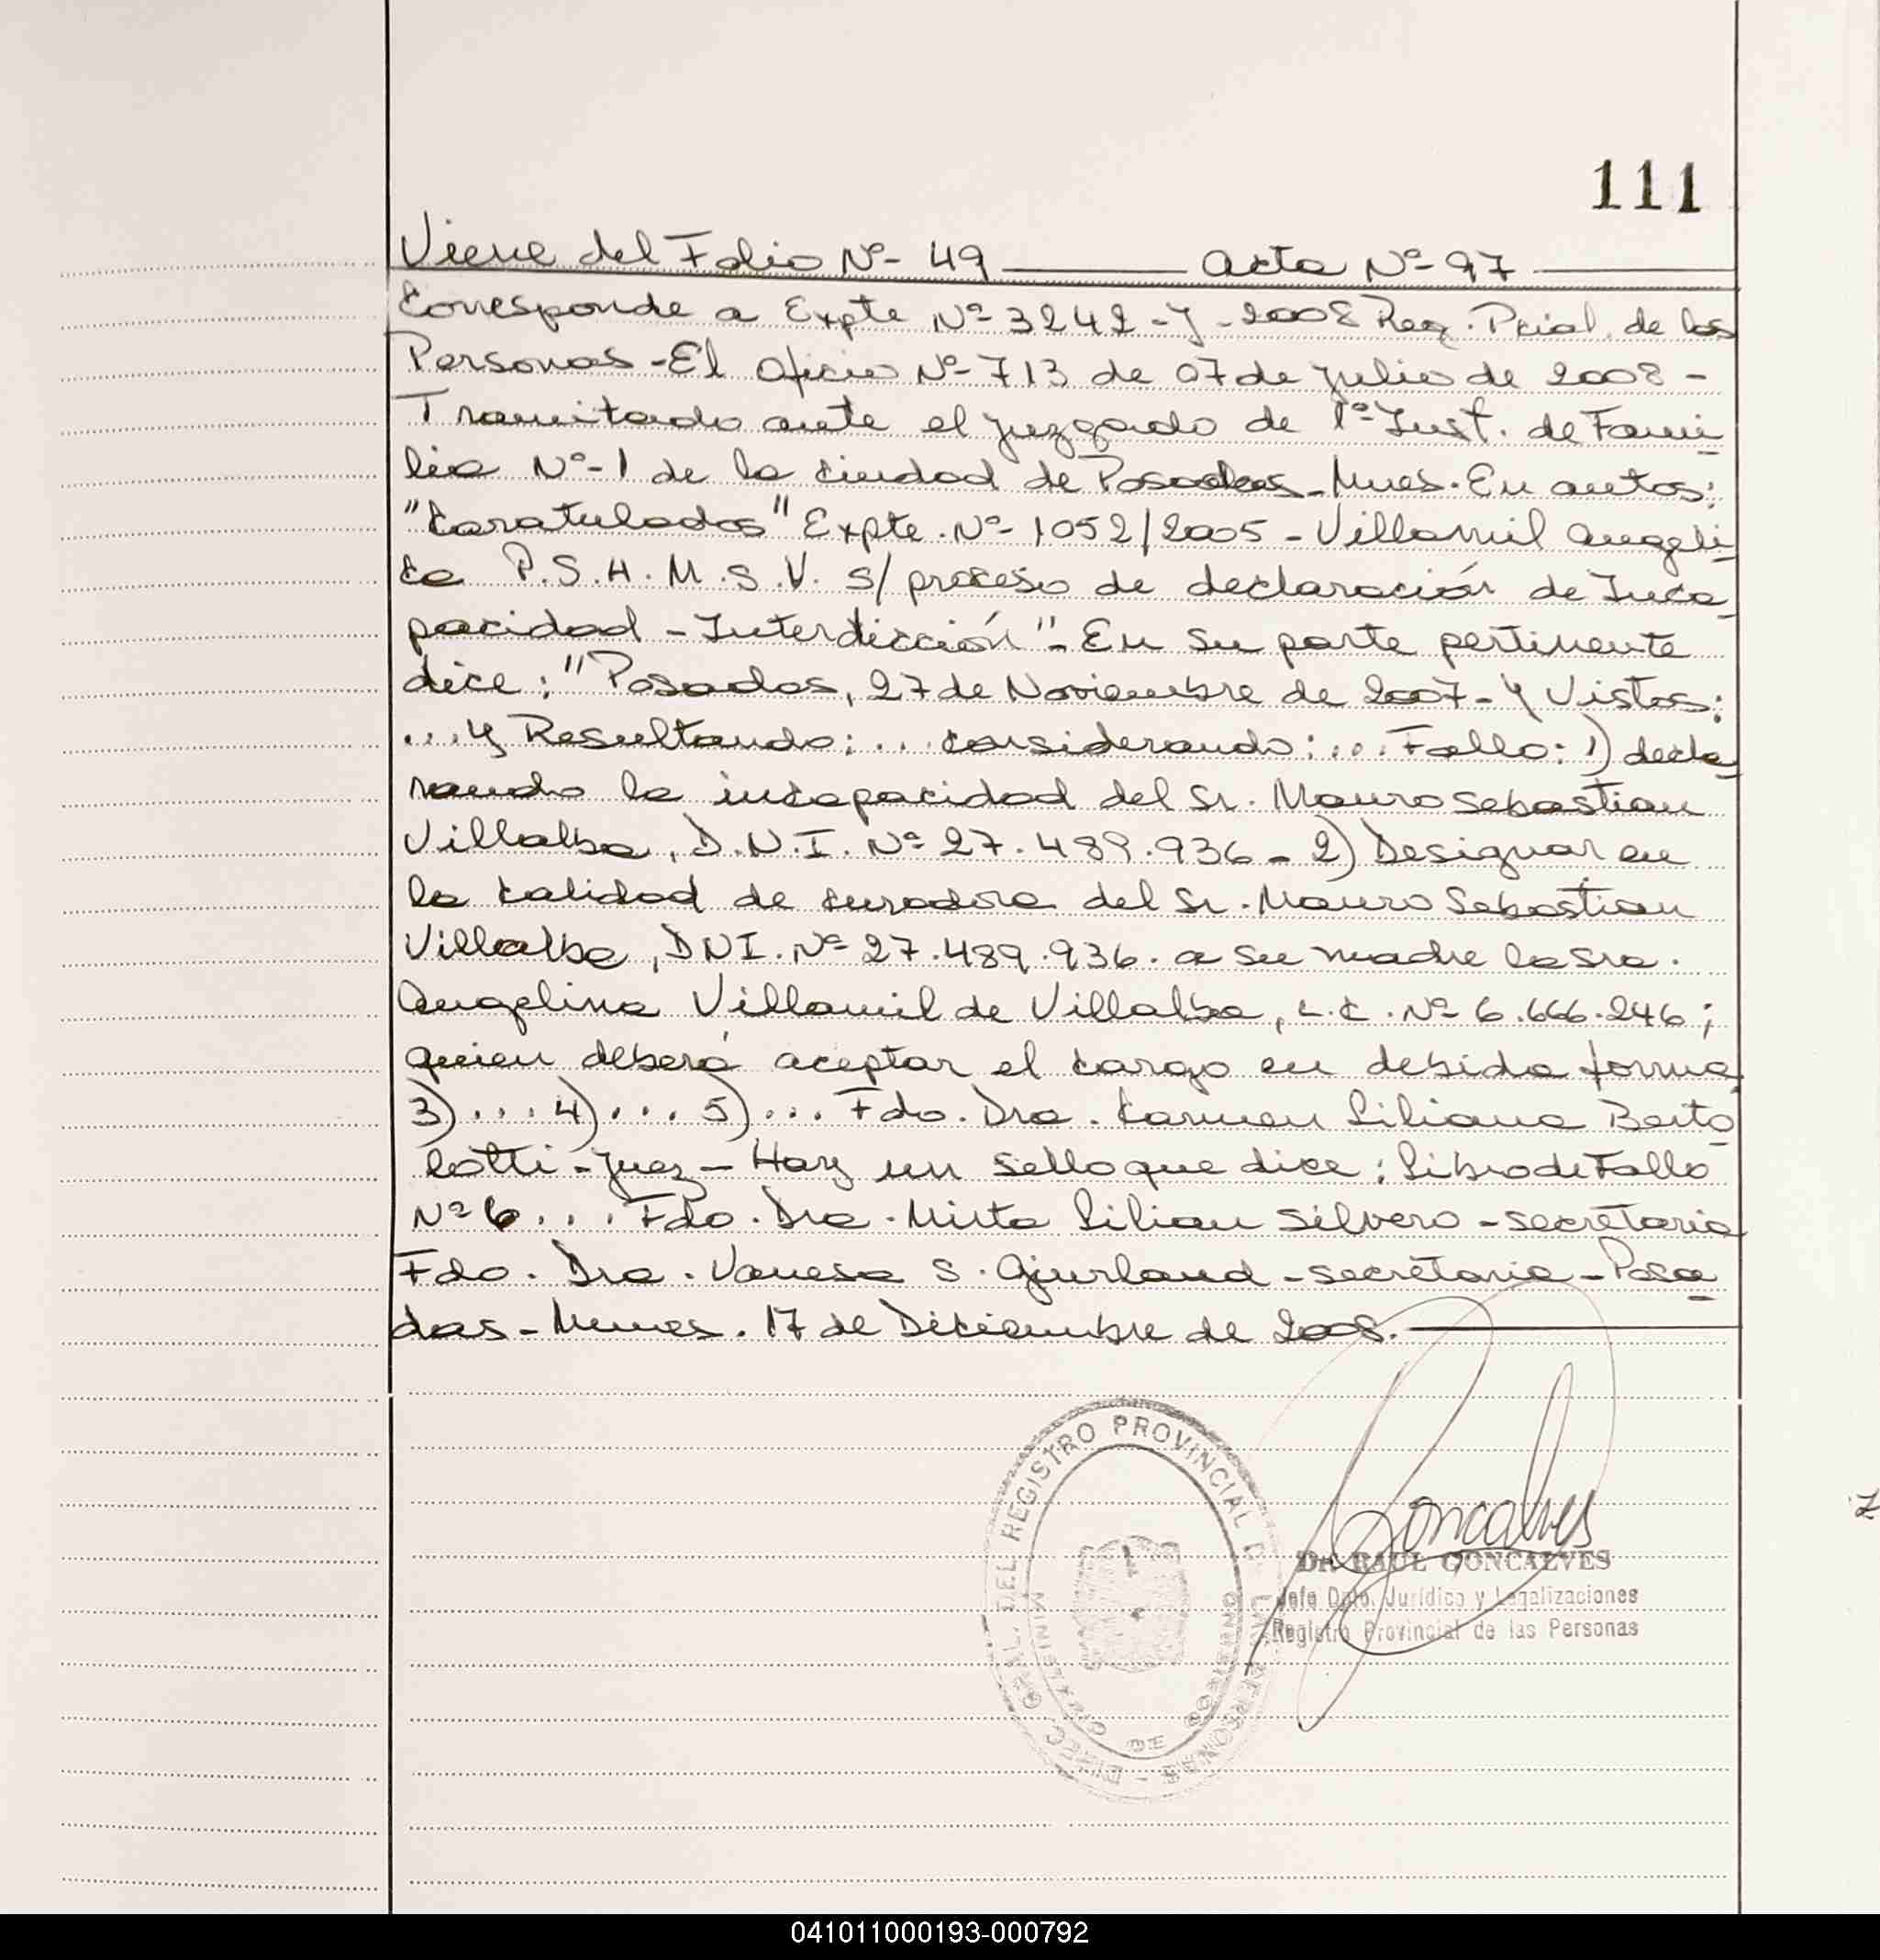 111
Viene del Folio Nº- 49 ——— Acta Nº- 97 ———
Corresponde a Expte Nº 3242-J-2008 Reg. Pcial. de las
Personas - El Oficio Nº- 713 de 07 de Julio de 2008 -
Tramitado ante el Juzgado de 1º Inst. de Fami
lia Nº-1 de la ciudad de Posadas - Mnes. En autos:
"Caratulados" Expte. Nº- 1052/2005 - Villamil Angeli
ca P.S.H.M.S.V. s/ proceso de declaración de Inca
pacidad - Interdicción" - En su parte pertinente
dice: "Posadas, 27 de Noviembre de 2007 - Y Vistos:
... y Resultando: ... considerando: ... Fallo: 1) decla
rando la incapacidad del Sr. Mauro Sebastian
Villalba, D.N.I. Nº 27.489.936 - 2) Designar en
la calidad de curadora del Sr. Mauro Sebastian
Villalba, DNI. Nº 27.489.936. a su madre la sra.
Angelina Villamil de Villalba, L.C. Nº 6.666.246;
quien deberá aceptar el cargo en debida forma
3) ... 4) ... 5) ... Fdo. Dra. Carmen Liliana Berto
lotti - Juez - Hay un sello que dice: Libro de Fallo
Nº 6 ... Fdo. Dra. Mirta Lilian Silvero - secretaria
Fdo. Dra. Vanesa S. Gjurland - secretaria - Posa
das - Mnes. 17 de Diciembre de 2008.
DIREC. GRAL. DEL REGISTRO PROVINCIAL DE LAS PERSONAS
MINISTERIO DE GOBIERNO
Goncalves
Dr. RAUL GONCALVES
Jefe Dpto. Jurídico y Legalizaciones
Registro Provincial de las Personas
041011000193-000792